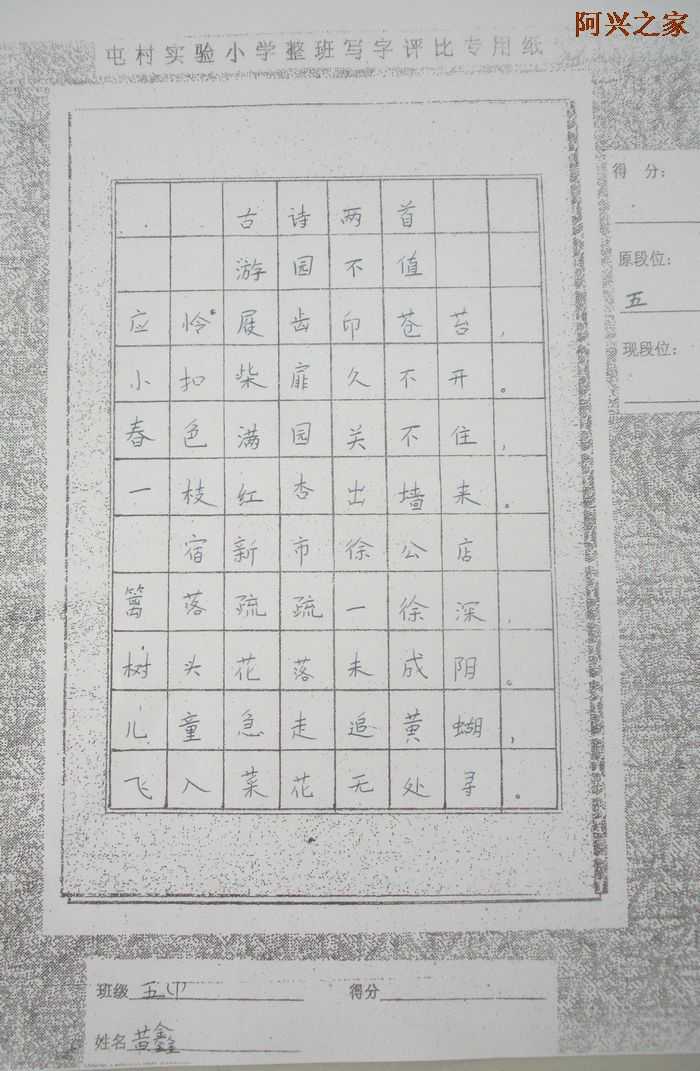 阿兴之家
屯村实验小学整班写字评比专用纸
得 分:
原段位:
五
现段位:
古诗两首
游园不值
应怜屐齿印苍苔,
小扣柴扉久不开。
春色满园关不住,
一枝红杏出墙来。
宿新市徐公店
篱落疏疏一徐深,
树头花落未成阴。
儿童急走追黄蝴,
飞入菜花无处寻。
班级 五 得分
姓名 黄鑫